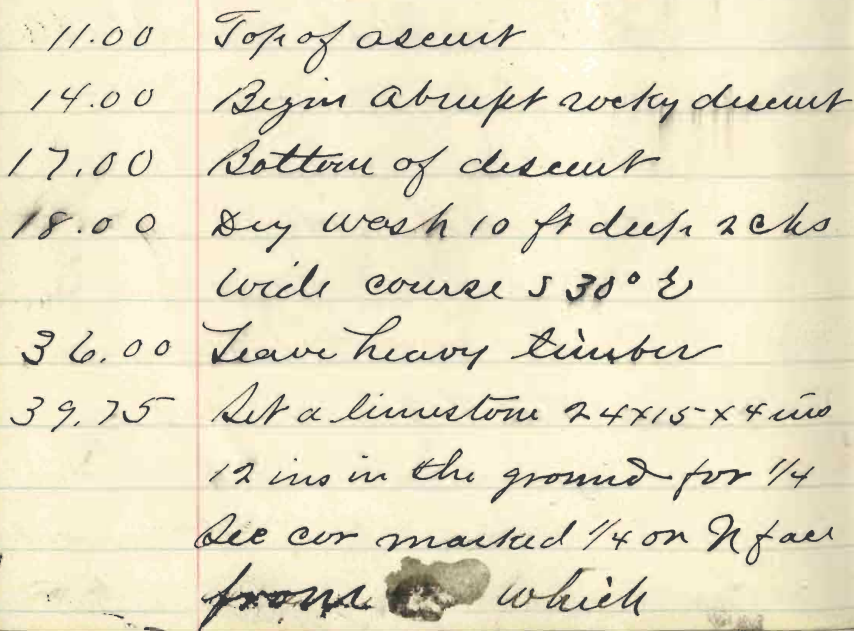 11.00 Top of ascent
14.00 Begin Abrupt rocky descent
17.00 Bottom of descent
18.00 Dry wash 10 ft deep 2 chs
wide course S 30° E
36.00 Leave heavy timber
39.75 Set a limestone 24x15x4 ins
12 ins in the ground for 1/4
Sec cor marked 1/4 on N face
from which